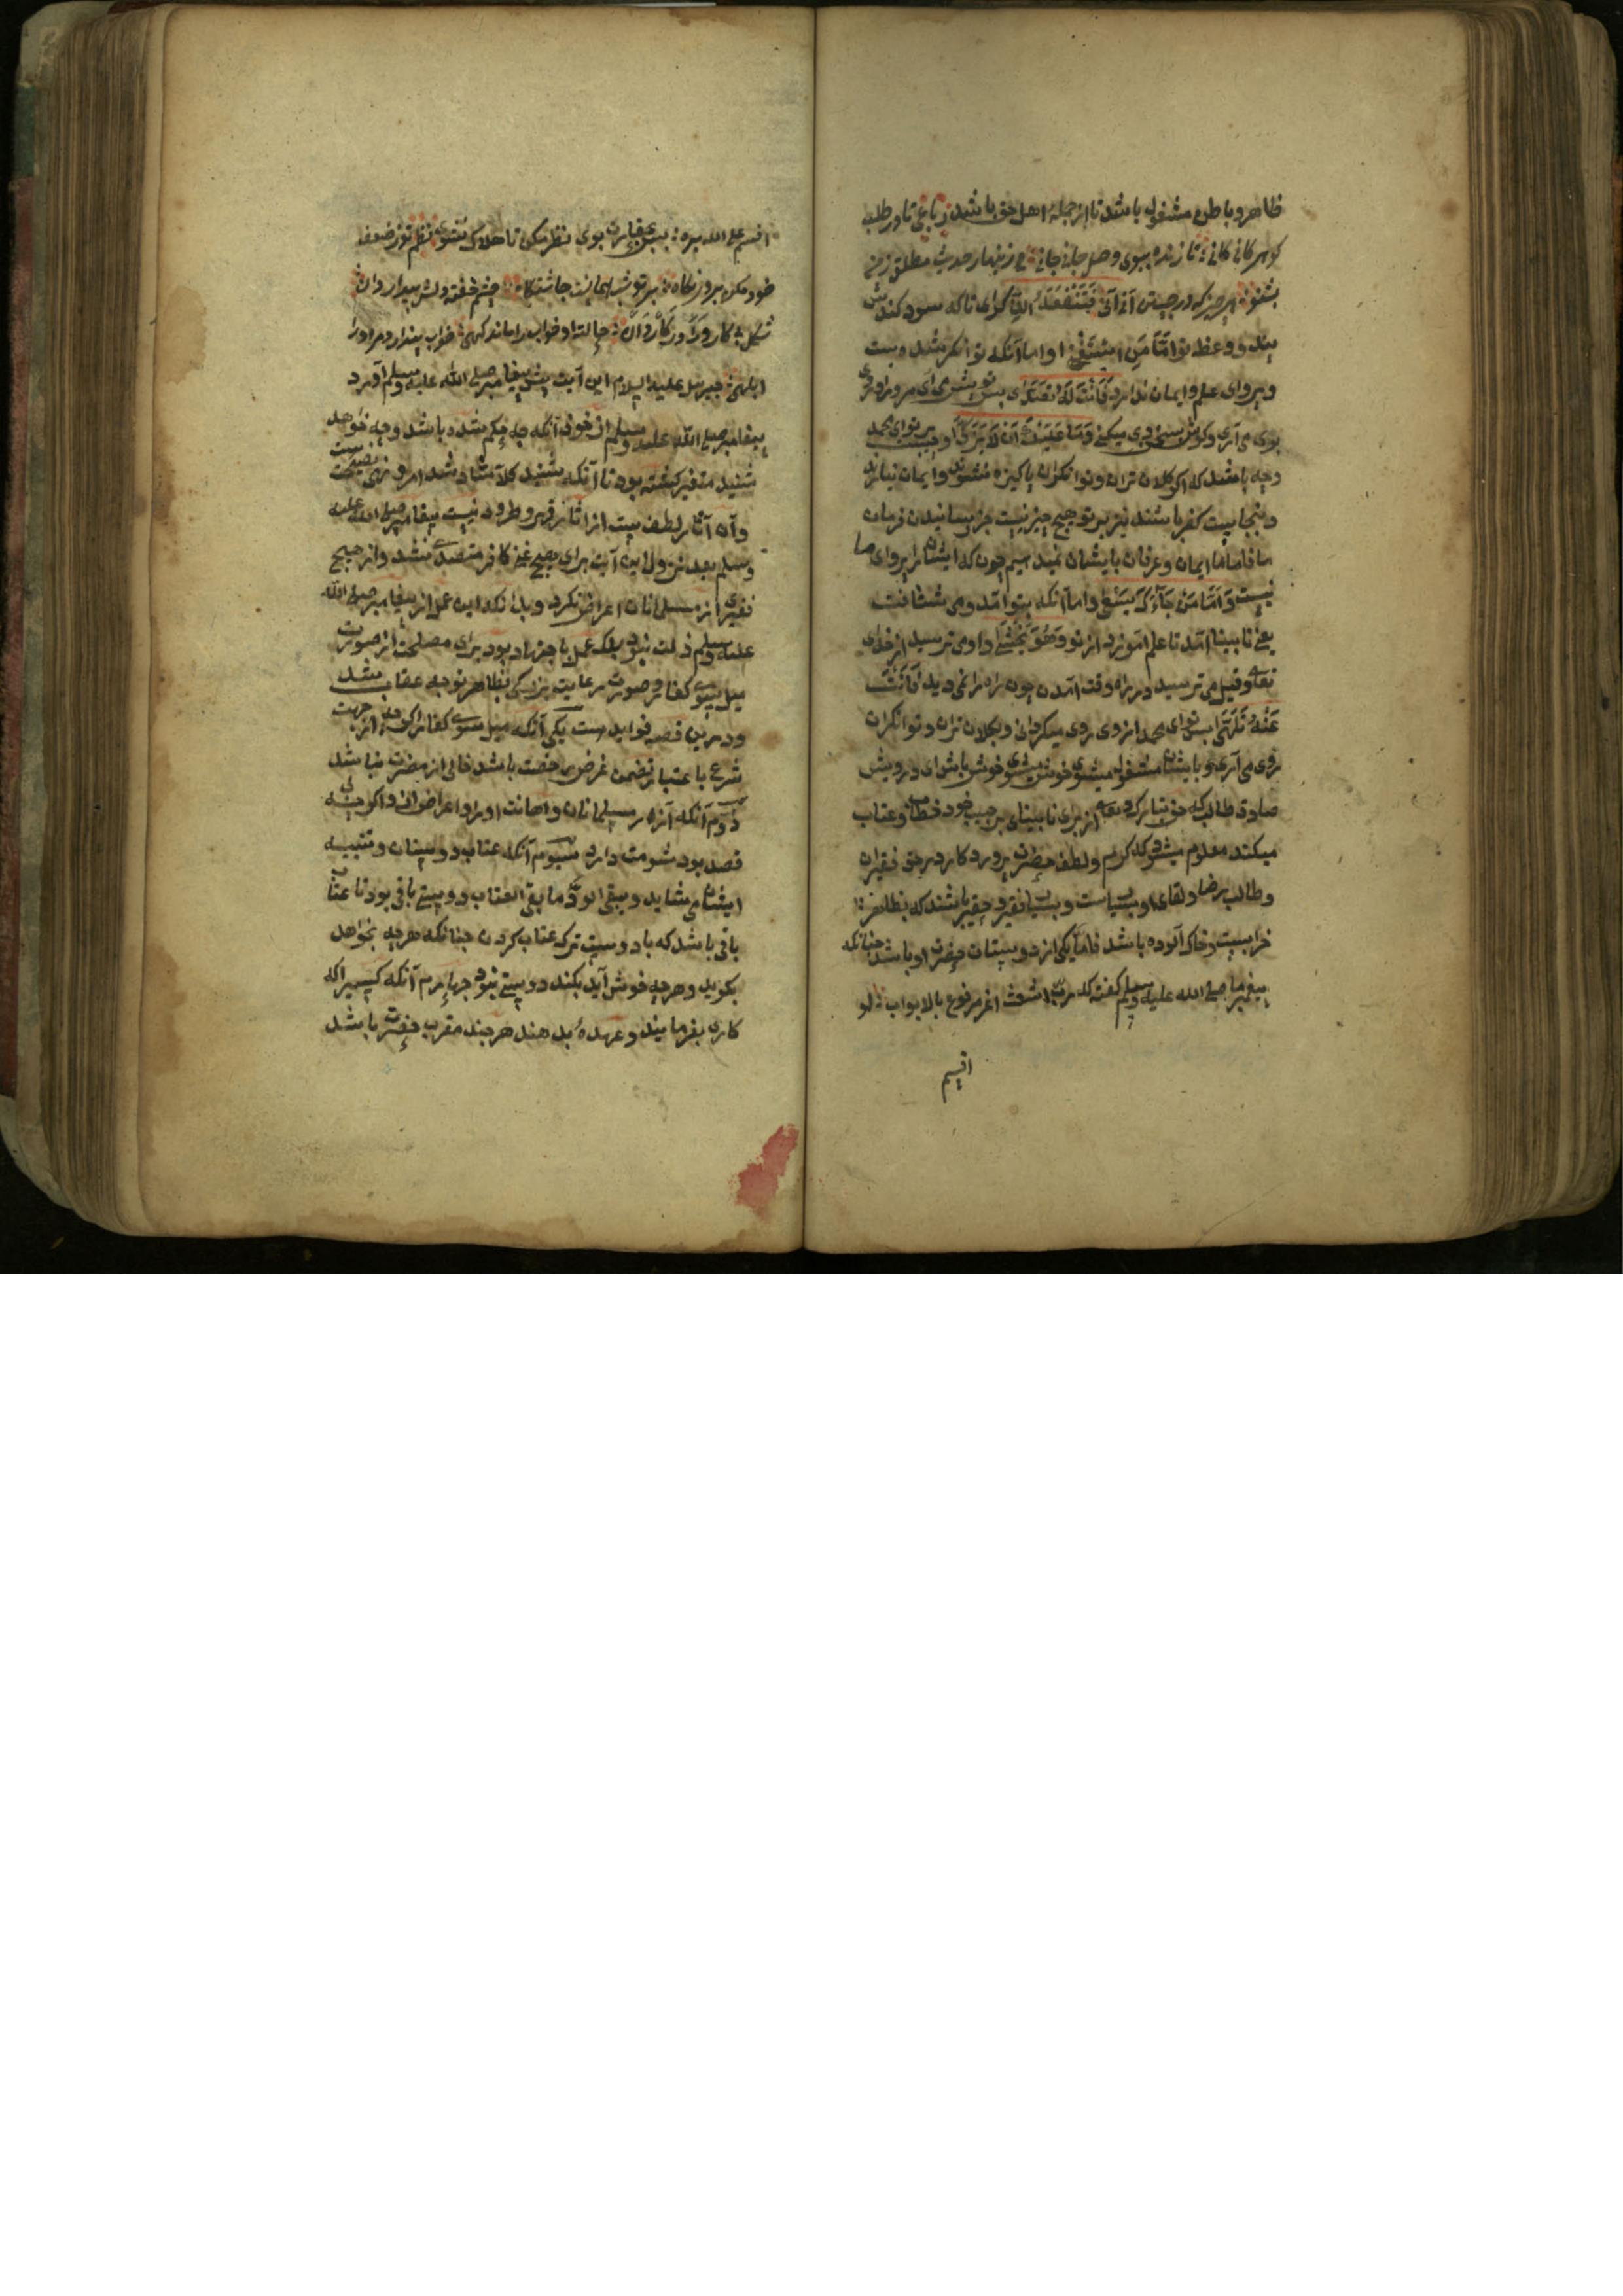 ظاهر و باطن مشغول باشد تا از جملهٔ اهل حق باشد رباعی تا در طلب
کوهر کانی کانی تا زنده ببوی وصل جانی جانی فی زینهار حدیث مطلق ز من
بشنو هر چیز که در جستن آنی آنی فَتَنْفَعَهُ الذِّکرای تا که سود کندش
پند و وعظ تو اَمَّا مَنِ اسْتَغْنٰی او اما آنکه توانکر شد و بست
و پروای علم و ایمان ندارد فَاَنْتَ لَهُ تَصَدّٰی پس تو پیش می آی مر ورا و
روی می آری و کوشش میکنی وَمَا عَلَیْکَ اَنْ لَا یَزَّکّٰی او چیست بر تو ای محمد
وچه باشد که اکر کلان تران و توانکران پاکیزه نشوند و ایمان نیارند
کفر باشند نیز بر تو هیچ چیز نیست جز رسانیدن فرمان
ما فاما ما ایمان و عرفان بایشان نمیدهیم چون که ایشانرا پروای ما
نیست وَاَمَّا مَنْ جَآءَکَ یَسْعٰی و اما آنکه بتو آمد و می شتافت
یعنی نابینا آمد تا علم آموزد از تو وَهُوَ یَخْشٰی و او می ترسید از خدای
تعالی و قیل می ترسید در راه وقت آمدن چون راه را نمی دید فَاَنْتَ
عَنْهُ تَلَهّٰی پس تو ای محمد از وی روی میکردانی و بکلان تران و توانکران
روی می آری و بایشان مشغول میشوی خوش باش ای درویش
صادق طالب که حق تبارک و تعالی از برای نابینای بر حبیب خود خطاب و عتاب
میکند معلوم میشود که کرم و لطف حضرت پروردکار در حق فقیران
و طالب رضا و لقای او بسیاست و بسیا فقیر و حقیر باشند که بظاهر
خراب و خاک آلوده باشد فاما یکی از دوستان حضرت او باشد چنانکه
پیغمبر ما صلی الله علیه وسلم کفته که رب اشعث اغبر مدفوع بالابواب لو
اقسم
اقسم علی الله بره بحقارت بوی نظر مکن تا هلاک نشوی نظم تو ز ضعف
خود مکن در نکاه چشم خفته دلش بیدار دان
شکل کار در کار دان حالت او خواب را ماند کهی خواب پندارد مر او را
ابلهی جبریل علیه السلام این آیت پیش پیغامبر صلی الله علیه وسلم آورد
پیغامبر صلی الله علیه وسلم از خوف آنکه چه حکم شده باشد وچه خواهد
شنید متغیر کشته بود تا آنکه بشنید کلا شاد شد امر و نهی نصیحت ست
وآن آثار لطف ست از آثار قهر و طرد نیست پیغامبر صلی الله علیه
وسلم بعد نزول این آیت برای هیچ غنی کافر متصدی نشد و از هیچ
فقیری از مسلمانان اعراض نکرد و بدانکه این عمل از پیغامبر صلی الله
علیه وسلم ذلت نبود بلکه عمل باجتهاد بود برای مصلحت از صورت
میل بسوی کفار و صورت رعایت بزرکی بظاهر توجه عتاب شد
و درین قصه فواید ست یکی آنکه میل سوی کفار اکرچه از جهت
شرع باعتبار تضمن غرض صحت باشد خالی از مضرت نباشد
دوم آنکه آزار مسلمانان و اهانت او و اعراض از و اکرچه بی
قصد بود شومت دارد سیوم آنکه عتاب دوستان و تنبیه
ایشان می شاید و یبقی الود ما بقی العتاب دوستی باقی بود تا عتاب
باقی باشد که با دوست ترک عتاب کردن چنانکه هرچه بخواهد
بکوید و هرچه خوش آید بکند دوستی نبود چهارم آنکه کسیرا که
کاری بفرمایند و عهدهٔ بدهند هرچند مقرب حضرت باشد